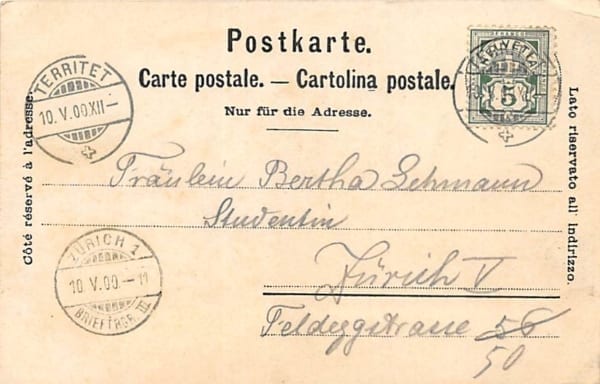 Postkarte.
Carte postale. — Cartolina postale.
Nur für die Adresse.
Côté réservé à l'adresse.
Lato riservato all' indirizzo.
TERRITET
10. V. 00. XII —
FRANCO
5
Fräulein Bertha Lehmann
Studentin
Zürich V
Feldeggstrasse 56
50
ZÜRICH 1
10. V. 00. — 11
BRIEFTRGR. III